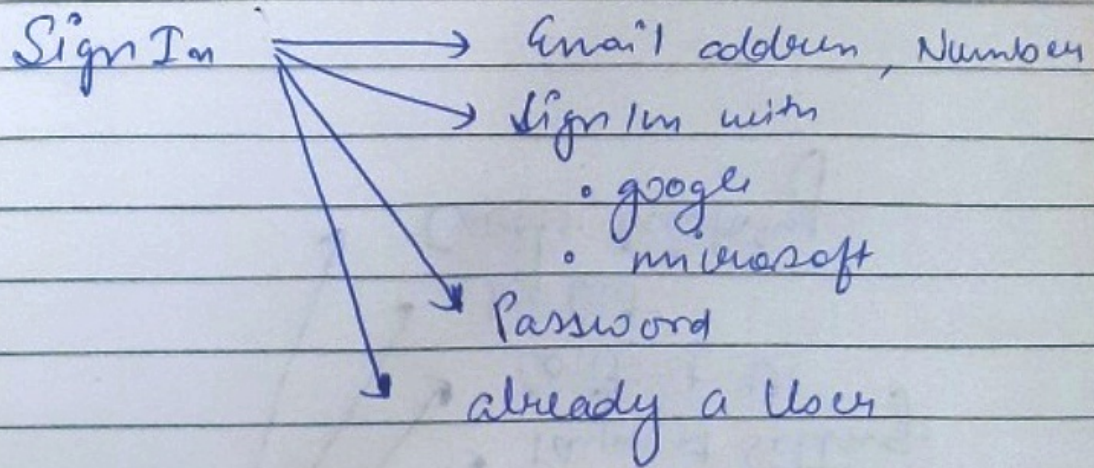 Sign In → Email address, Number
Sign In with
• google
• microsoft
Password
already a User